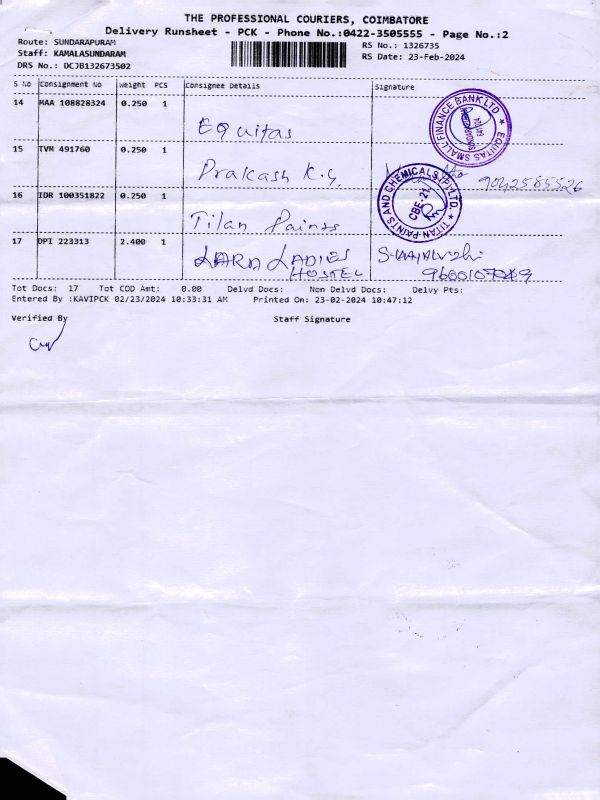 THE PROFESSIONAL COURIERS, COIMBATORE
Delivery Runsheet - PCK - Phone No.:0422-3505555 - Page No.:2
Route: SUNDARAPURAM
Staff: KAMALASUNDARAM
DRS No.: DCJB132673502
RS No.: 1326735
RS Date: 23-Feb-2024
S No Consignment No Weight PCS Consignee Details Signature
14 MAA 108828324 0.250 1 Equitas
EQUITAS SMALL FINANCE BANK LTD
15 TVM 491760 0.250 1 Prakash K.G. 9042585526
16 IDR 100351822 0.250 1 Titan Paints
TITAN PAINTS AND CHEMICALS (P) LTD. CBE-21.
17 DPI 223313 2.400 1 LARA LADIES
HOSTEL
Tot Docs: 17 Tot COD Amt: 0.00 Delvd Docs: Non Delvd Docs: Delvy Pts:
Entered By :KAVIPCK 02/23/2024 10:33:31 AM Printed On: 23-02-2024 10:47:12
Verified By Staff Signature